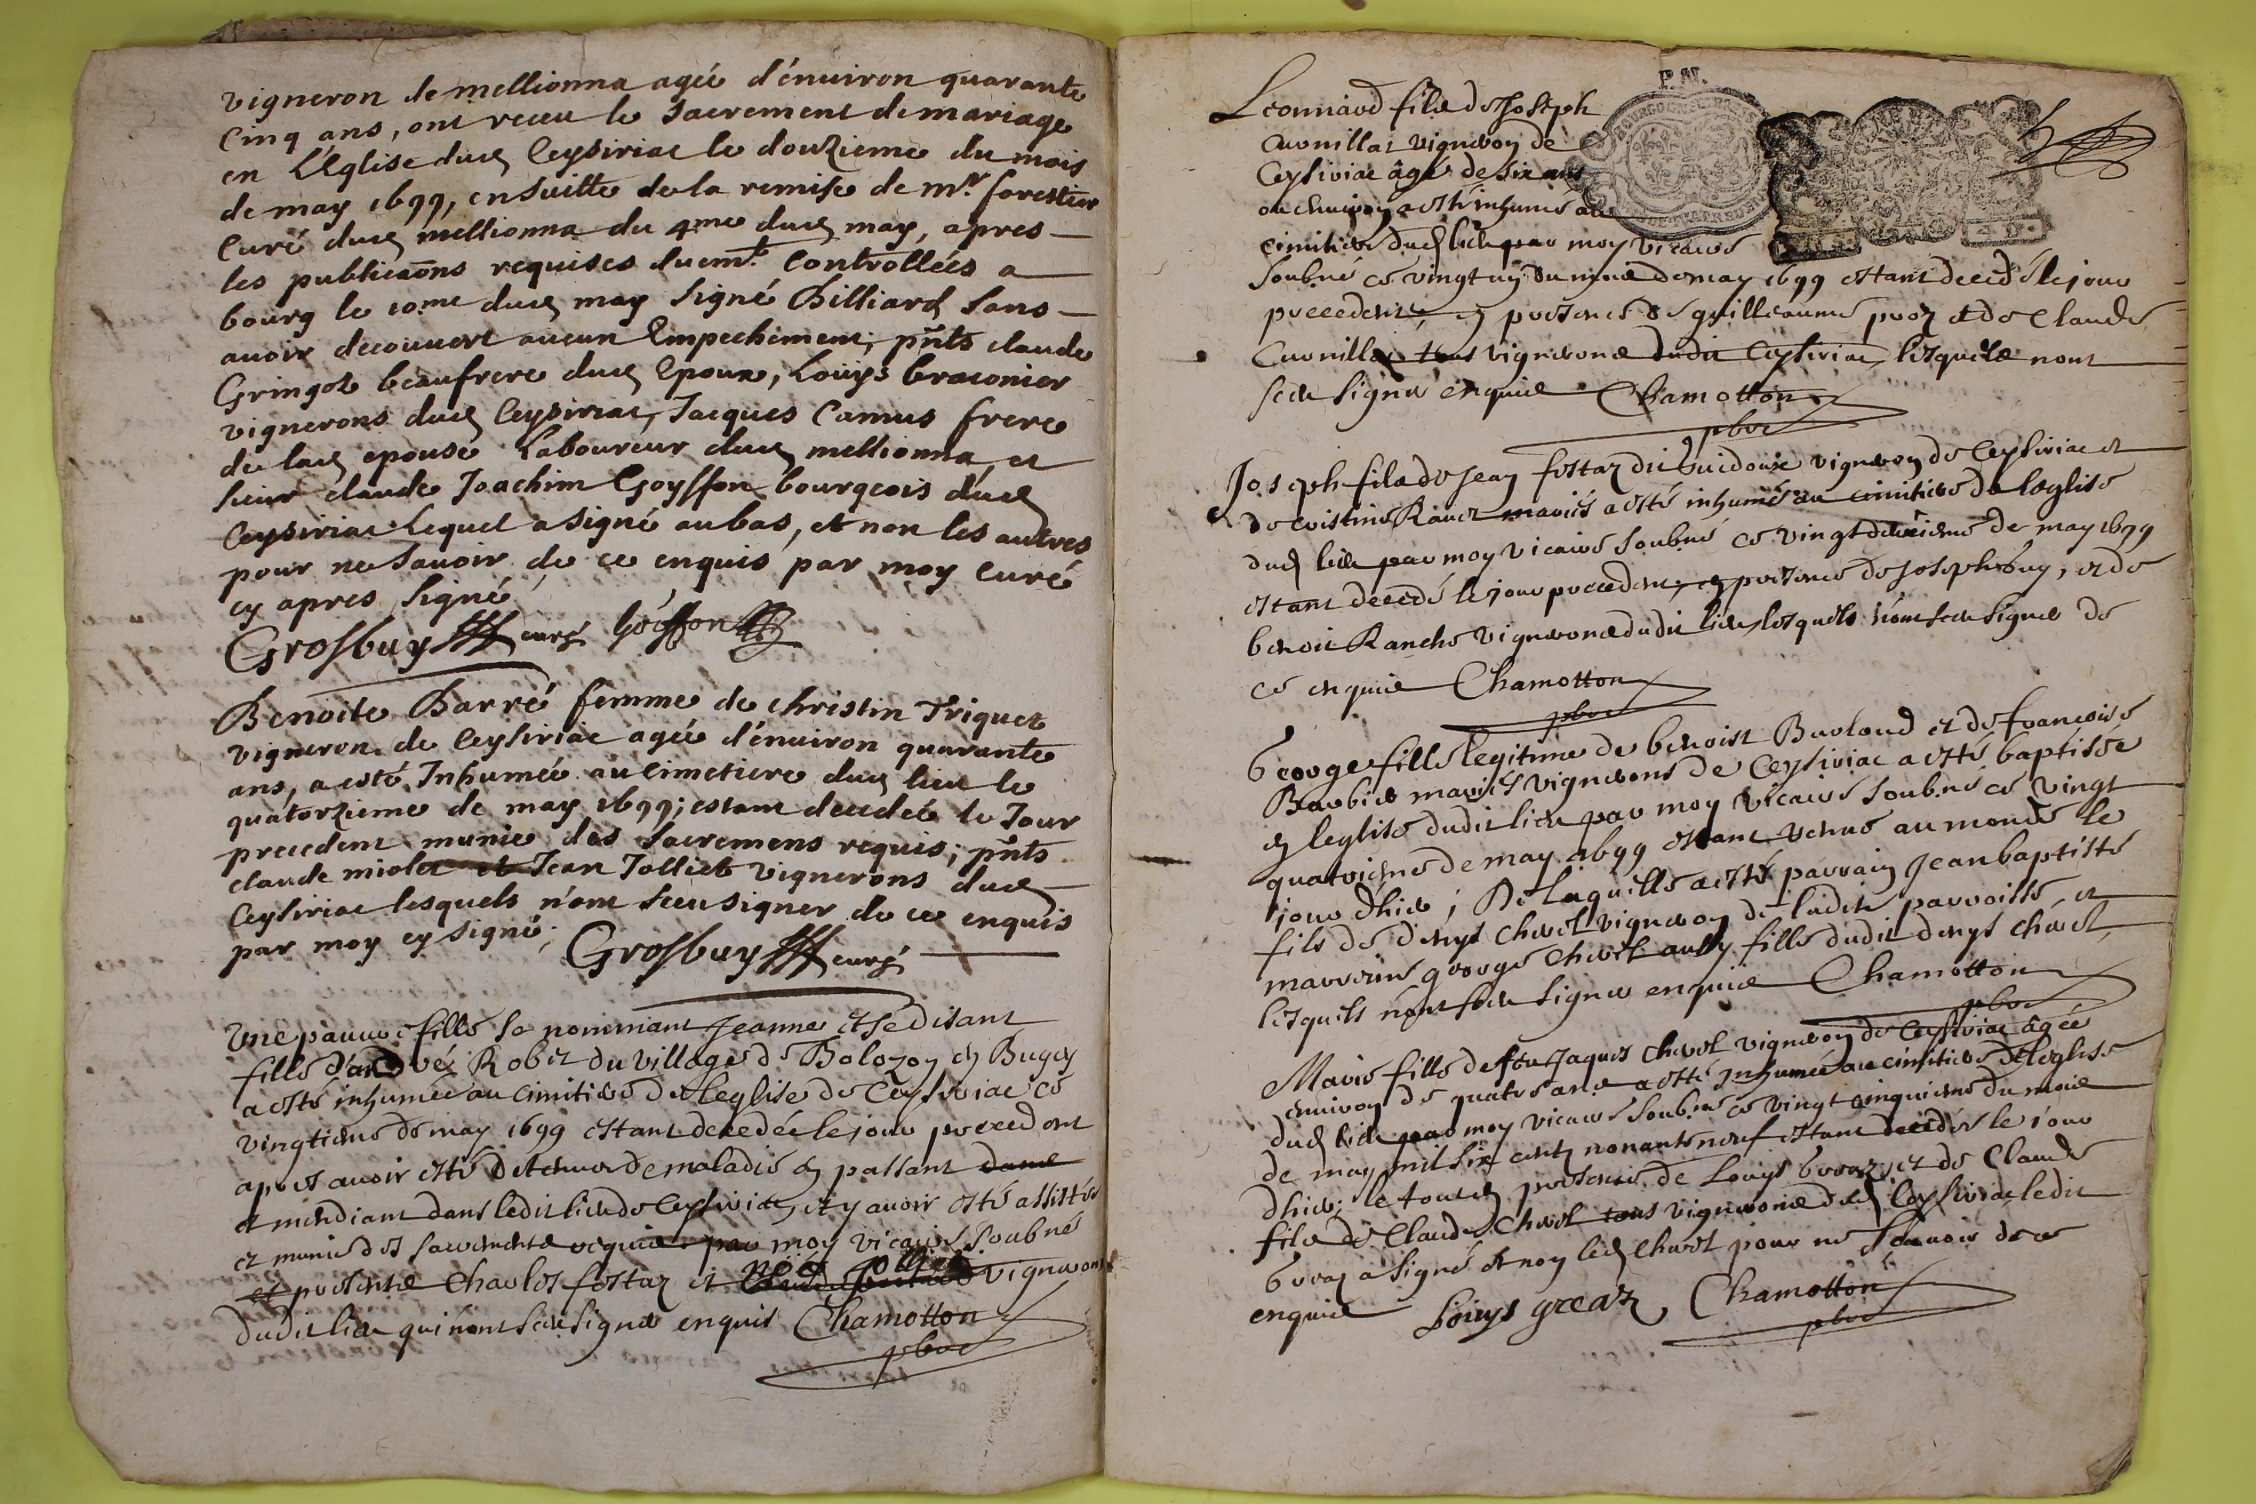 vigneron de mellionna agée d'énuiron quarante
cinq ans, ont receu le sacrement de mariage
en L'Eglise dud Ceysiriac le douzieme du mois
de may 1699, ensuitte de la remise de mr. forestier
Curé dud mellionna du 4me dud may, apres
les publicaōns requises duemt. Controllées a
bourg le 10.me dud may signé Billiard sans
auoir decouuert aucun Empechement; pn̄ts claude
Gringot beaufrere dud Epoux, Loüys braconier
vignerons dud Ceysiriac, Jacques Camus frere
de lad epouse Laboureur dud mellionna, et
sieur claude Joachim Goyffon bourgeois dud
Ceysiriac Lequel a signé au bas, et non les autres
pour ne sauoir de ce enquis par moy Curé
cy apres signé
Grosbuy curé Goiffon
Benoite Barré femme de christin Triquet
vigneron de Ceysiriac agée d'énuiron quarante
ans, a esté Inhumée au cimetiere dud lieu le
quatorzieme de may 1699; estant decedée le Jour
precedent munie des sacremens requis; pn̄ts
claude miolet et Jean Jolliet vignerons dud
Ceysiriac lesquels n'ont sceu signer de ce enquis
par moy cy signé; Grosbuy curé
Une pauure fille se nommant Jeanne et se disant
fille d'andré Robet du village de Bolozon en Bugey
a esté inhumée au cimitiere de leglise de Ceysiriac ce
vingtieme de may 1699 estant decedée le jour precedent
apres auoir esté detenue de maladie en passant
et mendiant dans ledit lieu de Ceysiriac, et y auoir esté assistée
et munie des sacrements requis par moy vicaire soubné
et presents Charles festaz et vignerons
dudit lieu qui n'ont sceu signer enquis Chamotton
pbre
P.M.
Leonnard fils de Joseph
Cuonillat vigneron de
Ceysiriac âgé de six ans
ou enuiron a esté inhumé au
cimitiere dud lieu par moy vicaire
soubné ce vingt un du mois de may 1699 estant decedé le jour
precedent, en presence de guilleaume proz et de Claude
Cuonillat tous vignerons dudit Ceysiriac, lesquels n'ont
sceu signer enquis Chamotton
pbre
Joseph fils de Jean festaz dit vigneron de Ceysiriac et
de cristine Ranct mariés a esté inhumé au cimitiere de leglise
dud lieu par moy vicaire soubné ce vingt deuxieme de may 1699
estant decedé le jour precedent, en presence de Joseph buy, et de
benoit Ranche vignerons dudit lieu, lesquels n'ont sceu signer de
ce enquis Chamotton
pbre
George fille legitime de benoist Burloud et de francoise
Barbier mariés vignerons de Ceysiriac a esté baptisée
en leglise dudit lieu par moy vicaire soubné ce vingt
quatrieme de may 1699 estant venue au monde le
jour d'hier; De laquelle a esté parrain Jean baptiste
fils de denys chevel vigneron de ladite parroisse, et
marreine george chevel aussy fille dudit denys chevel,
lesquels n'ont sceu signer enquis Chamotton
pbre
Marie fille de feu Jaques chevel vigneron de Ceysiriac âgée
enuiron de quatre ans a esté inhumée au cimitiere de leglise
dud lieu par moy vicaire soubné ce vingt cinquieme du mois
de may mil six cents nonante neuf estant decedée le jour
d'hier; le tout en presence de Louys greaz, et de Claude
fils de Claude Chevel tous vignerons dud Ceysiriac ledit
greaz a signé et non led chevel pour ne sauoir de ce
enquis Louys greaz, Chamotton
pbre